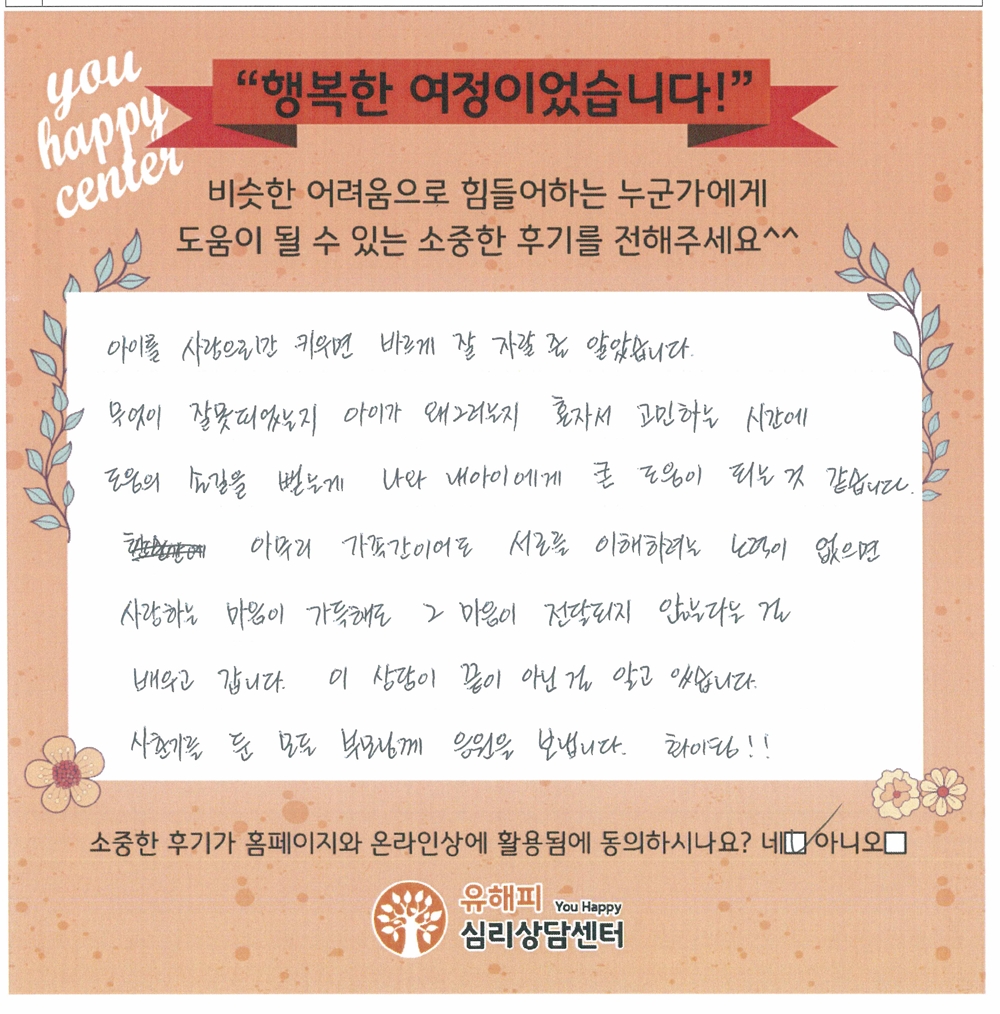 you
happy
center
“행복한 여정이었습니다!”
비슷한 어려움으로 힘들어하는 누군가에게
도움이 될 수 있는 소중한 후기를 전해주세요^^
아이를 사랑으로만 키우면 바르게 잘 자랄 줄 알았습니다.
무엇이 잘못되었는지 아이가 왜그러는지 혼자서 고민하는 시간에
도움의 손길을 뻗는게 나와 내아이에게 큰 도움이 되는 것 같습니다.
아무리 가족간이어도 서로를 이해하려는 노력이 없으면
사랑하는 마음이 가득해도 그 마음이 전달되지 않는다는 걸
배우고 갑니다. 이 상담이 끝이 아닌 걸 알고 있습니다.
사춘기를 둔 모든 부모님께 응원을 보냅니다. 화이팅!!
소중한 후기가 홈페이지와 온라인상에 활용됨에 동의하시나요? 네☑ 아니오□
유해피 You Happy
심리상담센터